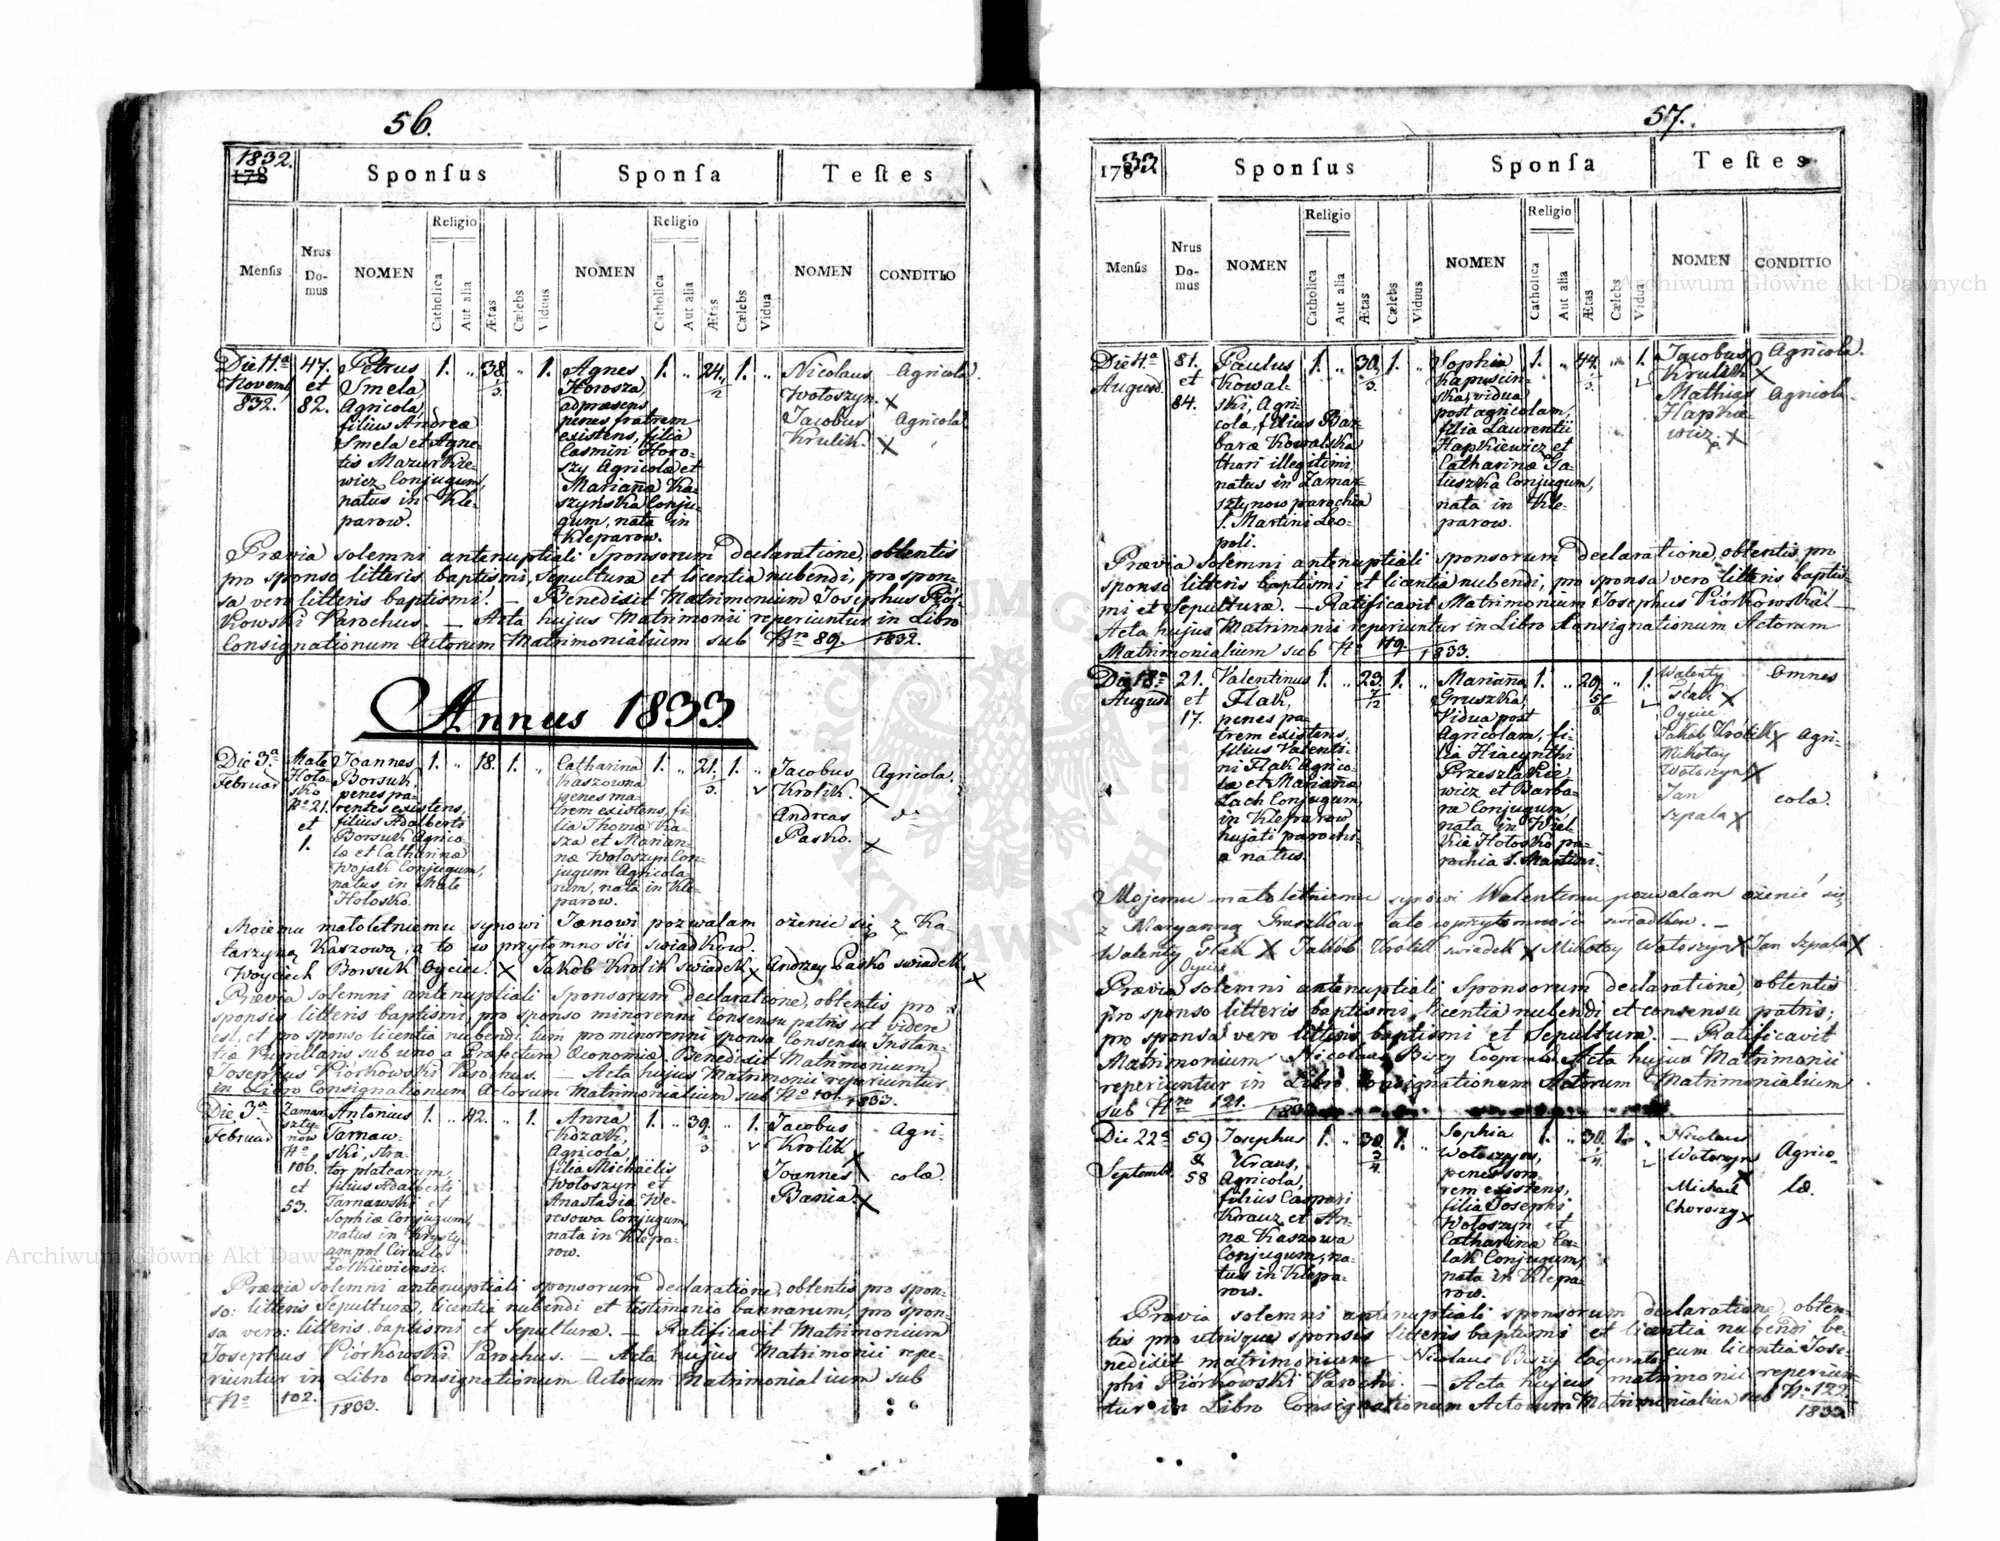 56.
1832.
178
Sponſus
Sponſa
Teſtes
Menſis
Nrus
Do-
mus
NOMEN
Religio
Catholica
Aut alia
Ætas
Cælebs
Viduus
NOMEN
Religio
Catholica
Aut alia
Ætas
Cælebs
Vidua
NOMEN
CONDITIO
Die 11ª
Novemb.
832.
47.
et
82.
Petrus
Smela,
Agricola,
filius Andreæ
Smela et Agne-
tis Mazurkie-
wicz Conjugum,
natus in Kle-
parow.
1. „ 38 „ 1.
3.
Agnes
Horosza,
ad præsens
penes fratrem
existens, filia
Casmiri Horo-
szy Agricolæ et
Marianæ Ka-
szyńska Conju-
gum, nata in
Kleparow.
1. „ 24. 1. „
2
Nicolaus
Wołoszyn. X
Jacobus
Krulik. X
Agricola.
Agricola
Prævia solemni antenuptiali Sponsorum declaratione, obtentis
pro sponso litteris baptismi, Sepulturæ et licentia nubendi, pro spon-
sa vero litteris baptismi. — Benedixit Matrimonium Josephus Piór-
kowski Parochus. — Acta hujus Matrimonii reperiuntur in Libro
Consignationum Actorum Matrimonialium sub Nro 89. 1832.
Annus 1833
Die 3ª
Februar
Małe
Hoło-
sko
No 21.
et
1.
Joannes
Borsuk,
penes pa-
rentes existens,
filius Adalberti
Borsuk Agrico-
læ et Catharinæ
Wojak Conjugum,
natus in Małe
Hołosko.
1. „ 18. 1. „
Catharina
Kaszowna
penes ma-
trem existens, fi-
lia Thomæ Ka-
sza et Marian-
næ Wołoszyn Con-
jugum Agricola-
rum, nata in Kle-
parow.
1. „ 21. 1. „
3.
Jacobus
Krolik. X
Andreas
Pasko. X
Agricola,
Moiemu małoletniemu synowi Janowi pozwalam ożenic się z Ka-
tarzyną Kaszową, a to w przytomności swiadków.
Woyciech Borsuk Oyciec. X Jakób Krolik swiadek X Andrzey Pasko swiadek X
Prævia solemni antenuptiali Sponsorum declaratione, obtentis pro
sponsis litteris baptismi, pro sponso minorenni Consensu patris ut videre
est, et pro sponso licentia nubendi, tum pro minorenni sponsa Consensu Instan-
tiæ Pupillaris sub uno a Præfectura Œconomiæ. Benedixit Matrimonium
Josephus Piórkowski Parochus. — Acta hujus Matrimonii reperiuntur
in Libro Consignationum Actorum Matrimonialium sub No 101. 1833.
Die 3ª
Februar
Zamar-
szty-
nów
No
106.
et
53.
Antonius
Tarnaw-
ski, stra-
tor platearum,
filius Adalberti
Tarnawski et
Sophiæ Conjugum,
natus in Krysty-
ampol Circulo
Zołkieviensi.
1. „ 42. „ 1.
Anna
Kozak,
Agricola,
filia Michaëlis
Wołoszyn et
Anastasia We-
resowa Conjugum
nata in Klepa-
row.
1. „ 39. „ 1.
3
Jacobus
Krolik X
Joannes
Bania. X
Agri-
colæ.
Prævia solemni antenuptiali sponsorum declaratione, obtentis pro spon-
so: litteris Sepulturæ, licentia nubendi et testimonio bannorum, pro spon-
sa vero: litteris baptismi et Sepulturæ. — Ratificavit Matrimonium
Josephus Piórkowski Parochus. — Acta hujus Matrimonii repe-
riuntur in Libro Consignationum Actorum Matrimonialium sub
No 102. 1833.
57.
17833
Sponſus
Sponſa
Teſtes
Menſis
Nrus
Do-
mus
NOMEN
Religio
Catholica
Aut alia
Ætas
Cælebs
Viduus
NOMEN
Religio
Catholica
Aut alia
Ætas
Cælebs
Vidua
NOMEN
CONDITIO
Die 4ª
August.
81.
et
84.
Paulus
Kowal-
ski, Agri-
cola, filius Bar-
baræ Kowalska
thori illegitimi,
natus in Zamar-
sztynow parochia
S. Martini Leo-
poli.
1. „ 30. 1. „
3.
Sophia
Kapuscin-
ska, vidua
post agricolam,
filia Laurentii
Hapkiewicz et
Catharinæ Ga-
luszka Conjugum,
nata in Kle-
parow.
1. „ 44. „ 1.
3.
Jacobus
Krulik X
Mathias
Hapkie-
wicz. X
Agricola.
Agricola.
Prævia solemni antenuptiali sponsorum declaratione, obtentis pro
sponso litteris baptismi et licentia nubendi, pro sponsa vero litteris baptis-
mi et Sepulturæ. — Ratificavit Matrimonium Josephus Piórkowski —
Acta hujus Matrimonii reperiuntur in Libro Consignationum Actorum
Matrimonialium sub No 119. 1833.
Die 18ª
August
21.
et
17.
Valentinus
Flak,
penes pa-
trem existens,
filius Valenti-
ni Flak Agrico-
læ et Mariannæ
Zach Conjugum,
in Kleparow
hujati parochi-
a natus.
1. „ 23 1. „
7
12
Marianna
Gruszka,
Vidua post
Agricolam, fi-
lia Hiacynthi
Przeszlakie-
wicz et Barba-
ræ Conjugum,
nata in Wiel-
kie Hołosko pa-
rochia S. Martini.
1. „ 29. „ 1.
5
6
Walenty
Flak X
Oyciec
Jakób Królik X
Mikołay
Wołoszyn X
Jan
Szpala X
Omnes
Agri-
colæ.
Mojemu małoletniemu synowi Walentemu pozwalam ożenić się
z Maryanną Gruszkową a to w przytomności swiadków. —
Walenty Flak X Jakób Krolik swiadek X Mikołay Wołoszyn X Jan Szpala X
Oyciec
Prævia solemni antenuptiali Sponsorum declaratione, obtentis
pro sponso litteris baptismi, licentia nubendi et consensu patris;
pro sponsa vero litteris baptismi et Sepulturæ. — Ratificavit
Matrimonium Nicolaus Biszy Cooperat. Acta hujus Matrimonii
reperiuntur in Libro Consignationum Actorum Matrimonialium
sub Nro 121.
Die 22ª
Septemb.
59
&
58
Josephus
Kraus,
Agricola,
filius Caspari
Krauz et An-
næ Kaszowa
Conjugum, na-
tus in Klepa-
row.
1. „ 30 1. „
3
4
Sophia
Wołoszyn,
penes soro-
rem existens,
filia Josephi
Wołoszyn et
Catharinæ Ca-
lak Conjugum,
nata in Klepa-
row.
1. „ 30. 1. „
4.
Nicolaus
Wołoszyn
X
Michael
Choroszy X
Agrico-
læ.
Prævia solemni antenuptiali sponsorum declaratione, obten-
tis pro utrisque sponsis litteris baptismi et licentia nubendi be-
nedixit matrimonium — Nicolaus Biszy Cooperator cum licentia Jose-
phi Piórkowski Parochi. — Acta hujus matrimonii reperiun-
tur in Libro Consignationum Actorum Matrimonialium sub No 122
1833
Archiwum Główne Akt Dawnych
Archiwum Główne Akt Dawnych
ARCHIWUM GŁÓWNE AKT DAWNYCH